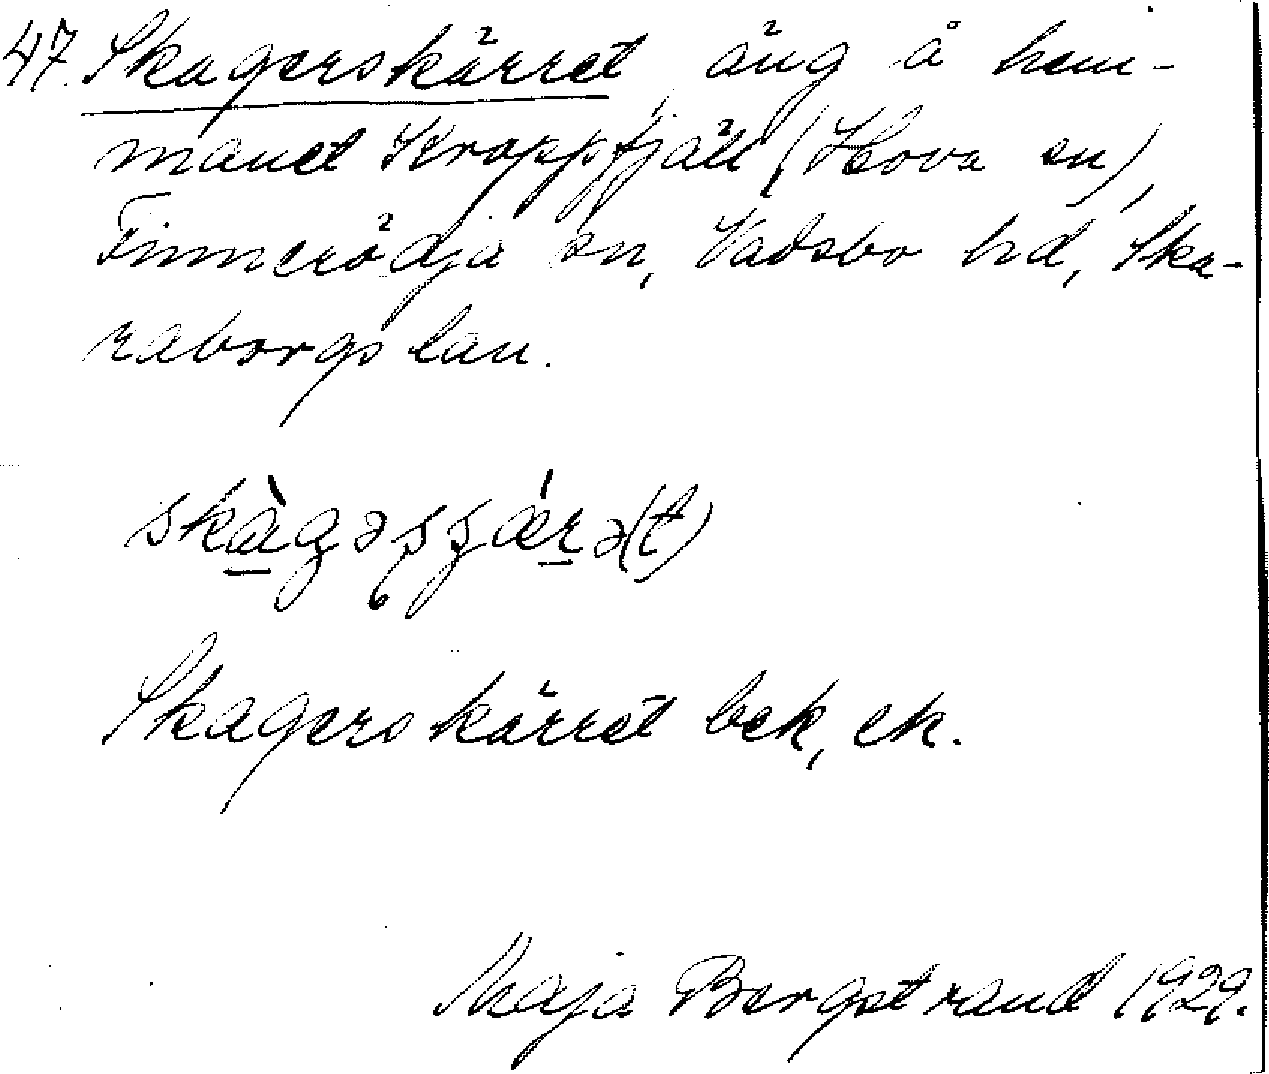 47. Skagerskärret, äng å hem-
manet Kroppfjäll (Hova sn),
Finnerödja sn, Vadsbo hd, Ska-
raborgs län.
skàgəʂʂǽrə(t)
Skagerskärret bek, ek.
Maja Bergstrand 1929.